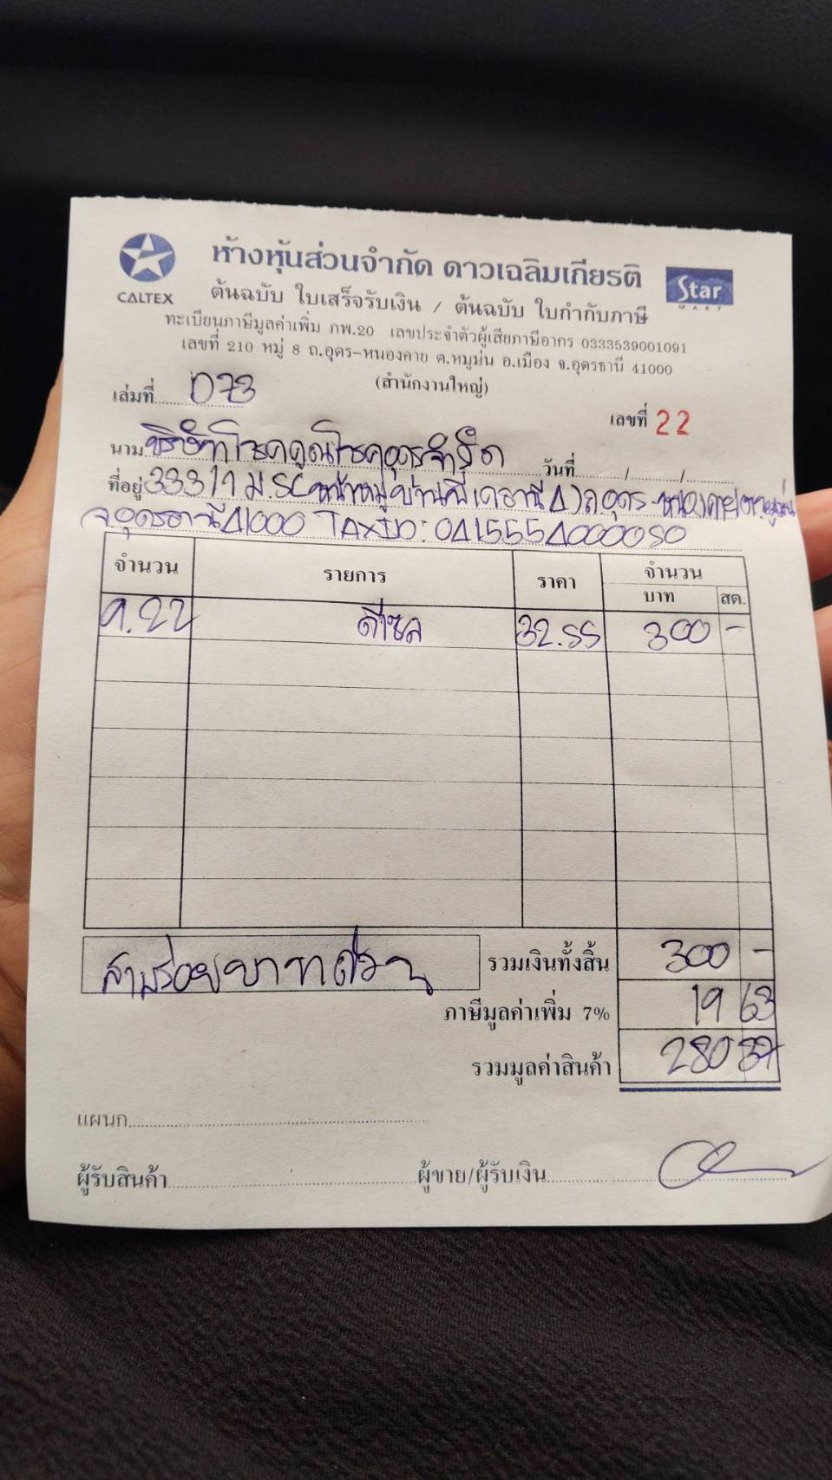 ห้างหุ้นส่วนจำกัด ดาวเฉลิมเกียรติ
CALTEX
Star
MART
ต้นฉบับ ใบเสร็จรับเงิน / ต้นฉบับ ใบกำกับภาษี
ทะเบียนภาษีมูลค่าเพิ่ม ภพ.20 เลขประจำตัวผู้เสียภาษีอากร 0333539001091
เลขที่ 210 หมู่ 8 ถ.อุดร-หนองคาย ต.หมูม่น อ.เมือง จ.อุดรธานี 41000
(สำนักงานใหญ่)
เล่มที่ 073
เลขที่ 22
นาม บริษัทโชคคูณโชคอุดรจำกัด วันที่ / /
ที่อยู่ 333/1 ม.5 ถ.อุดร-หนองคาย
จ.อุดรธานี 41000 TAX ID: 0415554000050
จำนวน รายการ ราคา จำนวน
บาท สต.
9.22 ดีเซล 32.55 300 -
สามร้อยบาทถ้วน รวมเงินทั้งสิ้น 300 -
ภาษีมูลค่าเพิ่ม 7% 19 63
รวมมูลค่าสินค้า 280 37
แผนก
ผู้รับสินค้า ผู้ขาย/ผู้รับเงิน